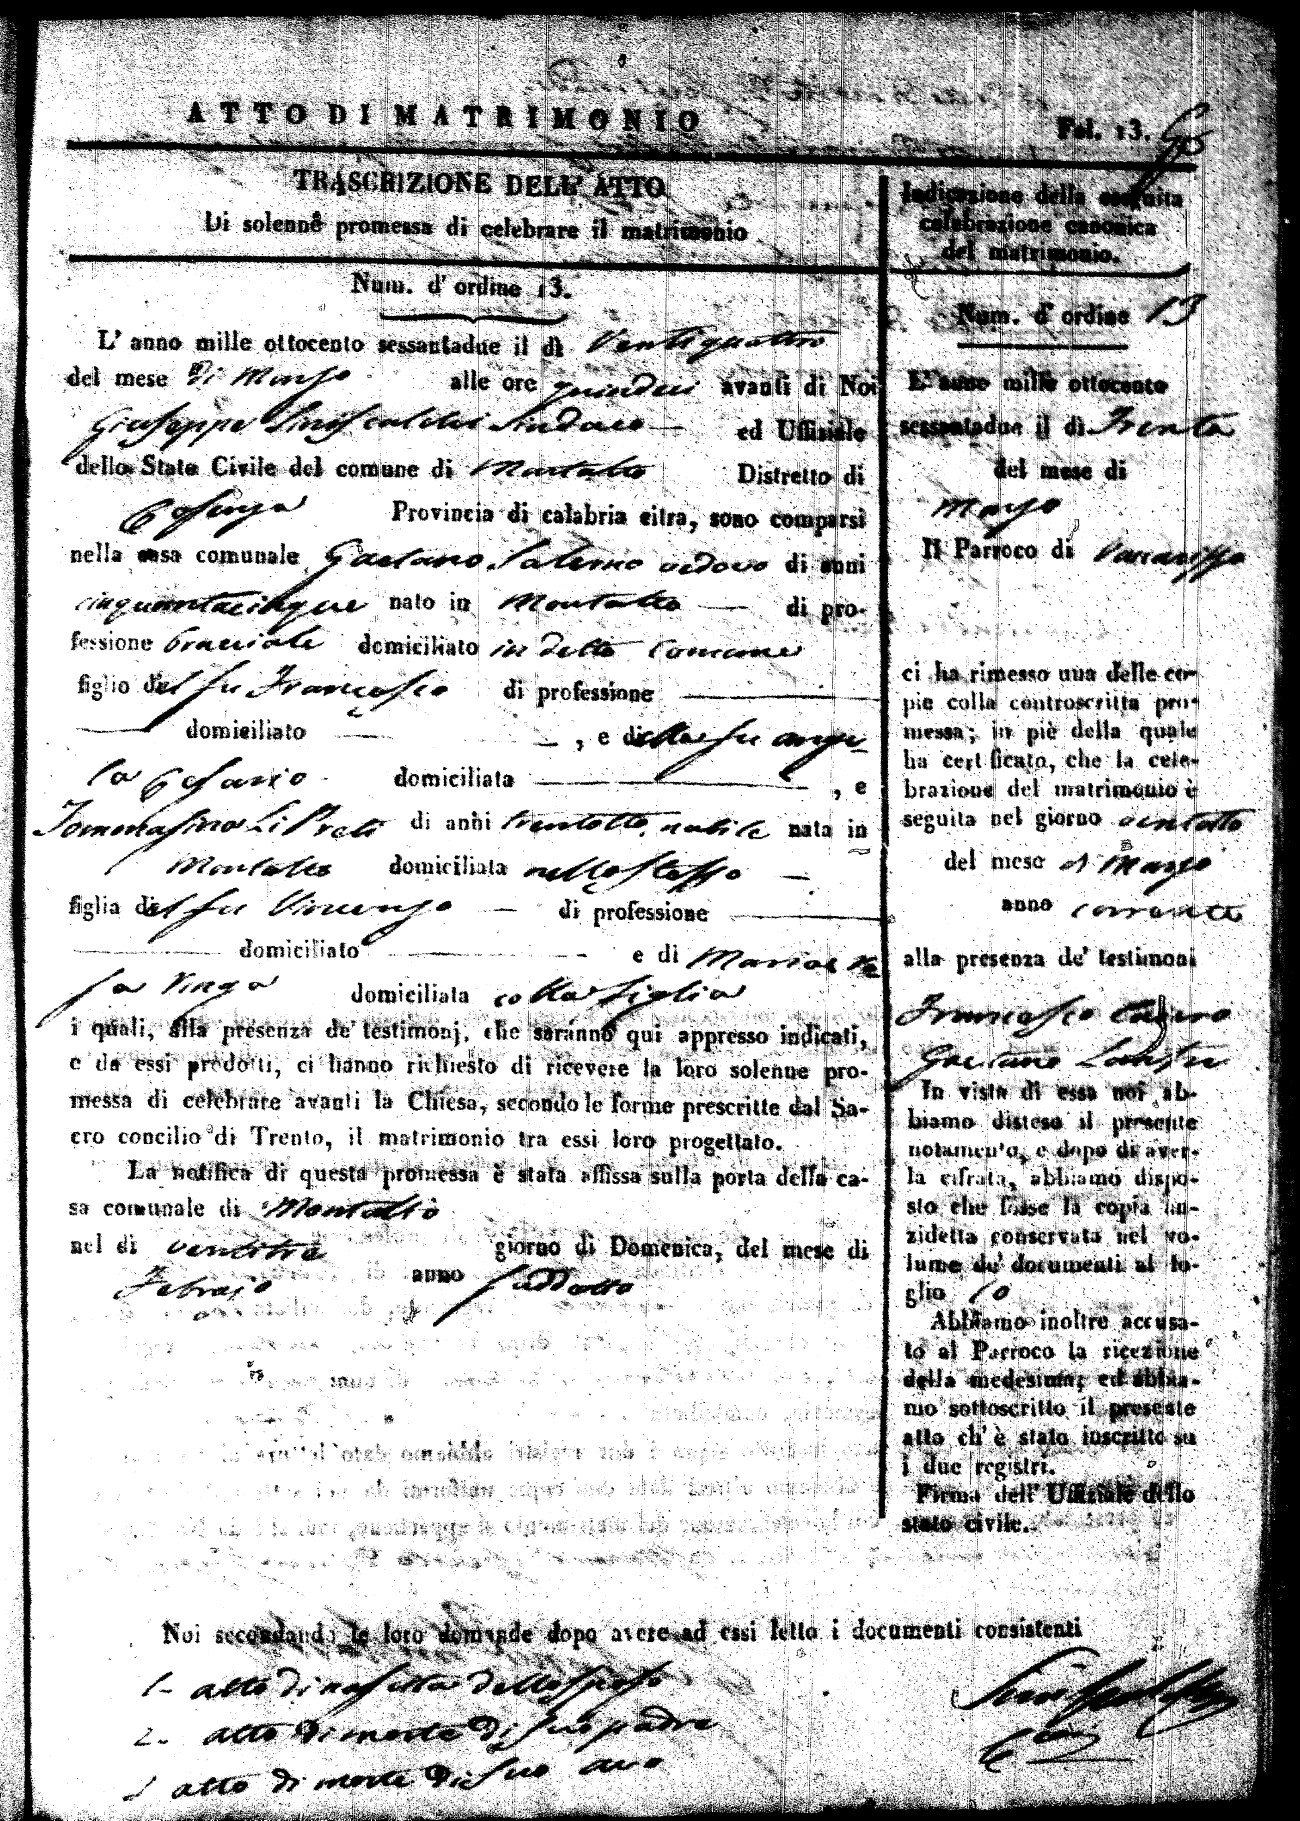 ATTO DI MATRIMONIO
Fol. 13.
TRASCRIZIONE DELL' ATTO
Di solenne promessa di celebrare il matrimonio
Num. d' ordine 13.
L' anno mille ottocento sessantadue il dì Ventiquattro
del mese di Marzo alle ore quindeci avanti di Noi
Giuseppe Siniscalchi Sindaco ed Uffiziale
dello Stato Civile del comune di Montalto Distretto di
Cosenza Provincia di calabria citra, sono comparsi
nella casa comunale Gaetano Salerno vedovo di anni
cinquantacinque nato in Montalto di pro-
fessione bracciale domiciliato in detto Comune
figlio del fu Francesco di professione
domiciliato , e di della fu Ange-
la Cesario domiciliata , e
Tommasina Li Preti di anni trentotto, nubile nata in
Montalto domiciliata nello stesso
figlia del fu Vincenzo di professione
domiciliato e di Maria Te
sa domiciliata colla figlia
i quali, alla presenza de' testimonj, che saranno qui appresso indicati,
e da essi prodotti, ci hanno richiesto di ricevere la loro solenne pro-
messa di celebrare avanti la Chiesa, secondo le forme prescritte dal Sa-
cro concilio di Trento, il matrimonio tra essi loro progettato.
La notifica di questa promessa è stata affissa sulla porta della ca-
sa comunale di Montalto
nel dì ventitre giorno di Domenica, del mese di
Febrajo anno suddetto
Indicazione della seguita
celebrazione canonica
del matrimonio.
Num. d' ordine 13
L' anno mille ottocento
sessantadue il dì Trenta
del mese di
Marzo
Il Parroco di Vaccarizzo
ci ha rimesso una delle co-
pie colla controscritta pro-
messa; in piè della quale
ha certificato, che la cele-
brazione del matrimonio è
seguita nel giorno ventotto
del mese di Marzo
anno corrente
alla presenza de' testimoni
Francesco
Gaetano
In vista di essa noi ab-
biamo disteso il presente
notamento, e dopo di aver-
la cifrata, abbiamo dispo-
sto che fosse la copia an-
zidetta conservata nel vo-
lume de' documenti al fo-
glio 10
Abbiamo inoltre accusa-
to al Parroco la ricezione
della medesima; ed abbia-
mo sottoscritto il presente
atto ch' è stato inscritto su
i due registri.
Firma dell' Uffiziale dello
stato civile.
Noi secondando le loro domande dopo avere ad essi letto i documenti consistenti
1- atto di nascita dello sposo
2- atto di morte di suo padre
3 atto di morte di suo avo
Siniscalchi